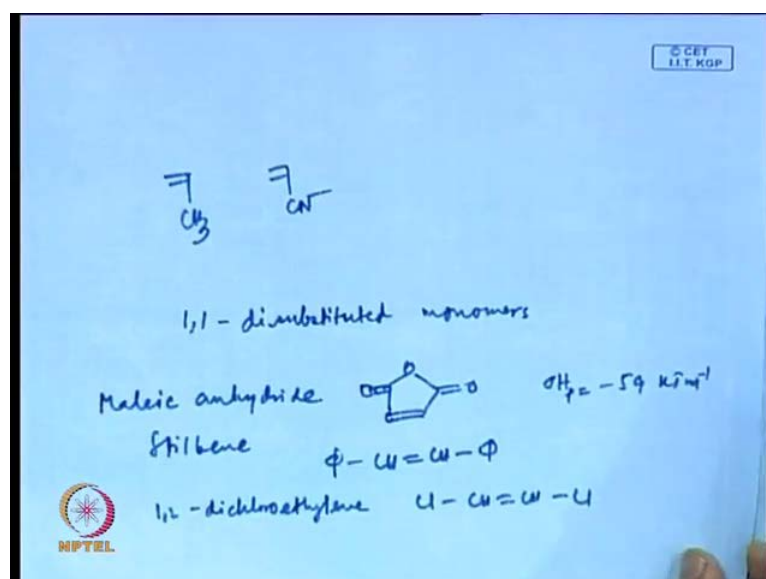 © CET
I.I.T. KGP
CH3 CN
1,1 - disubstituted monomers
Maleic anhydride O O O ΔHp = -59 kJ m-1
Stilbene Φ - CH = CH - Φ
1,2 - dichloroethylene Cl - CH = CH - Cl
NPTEL